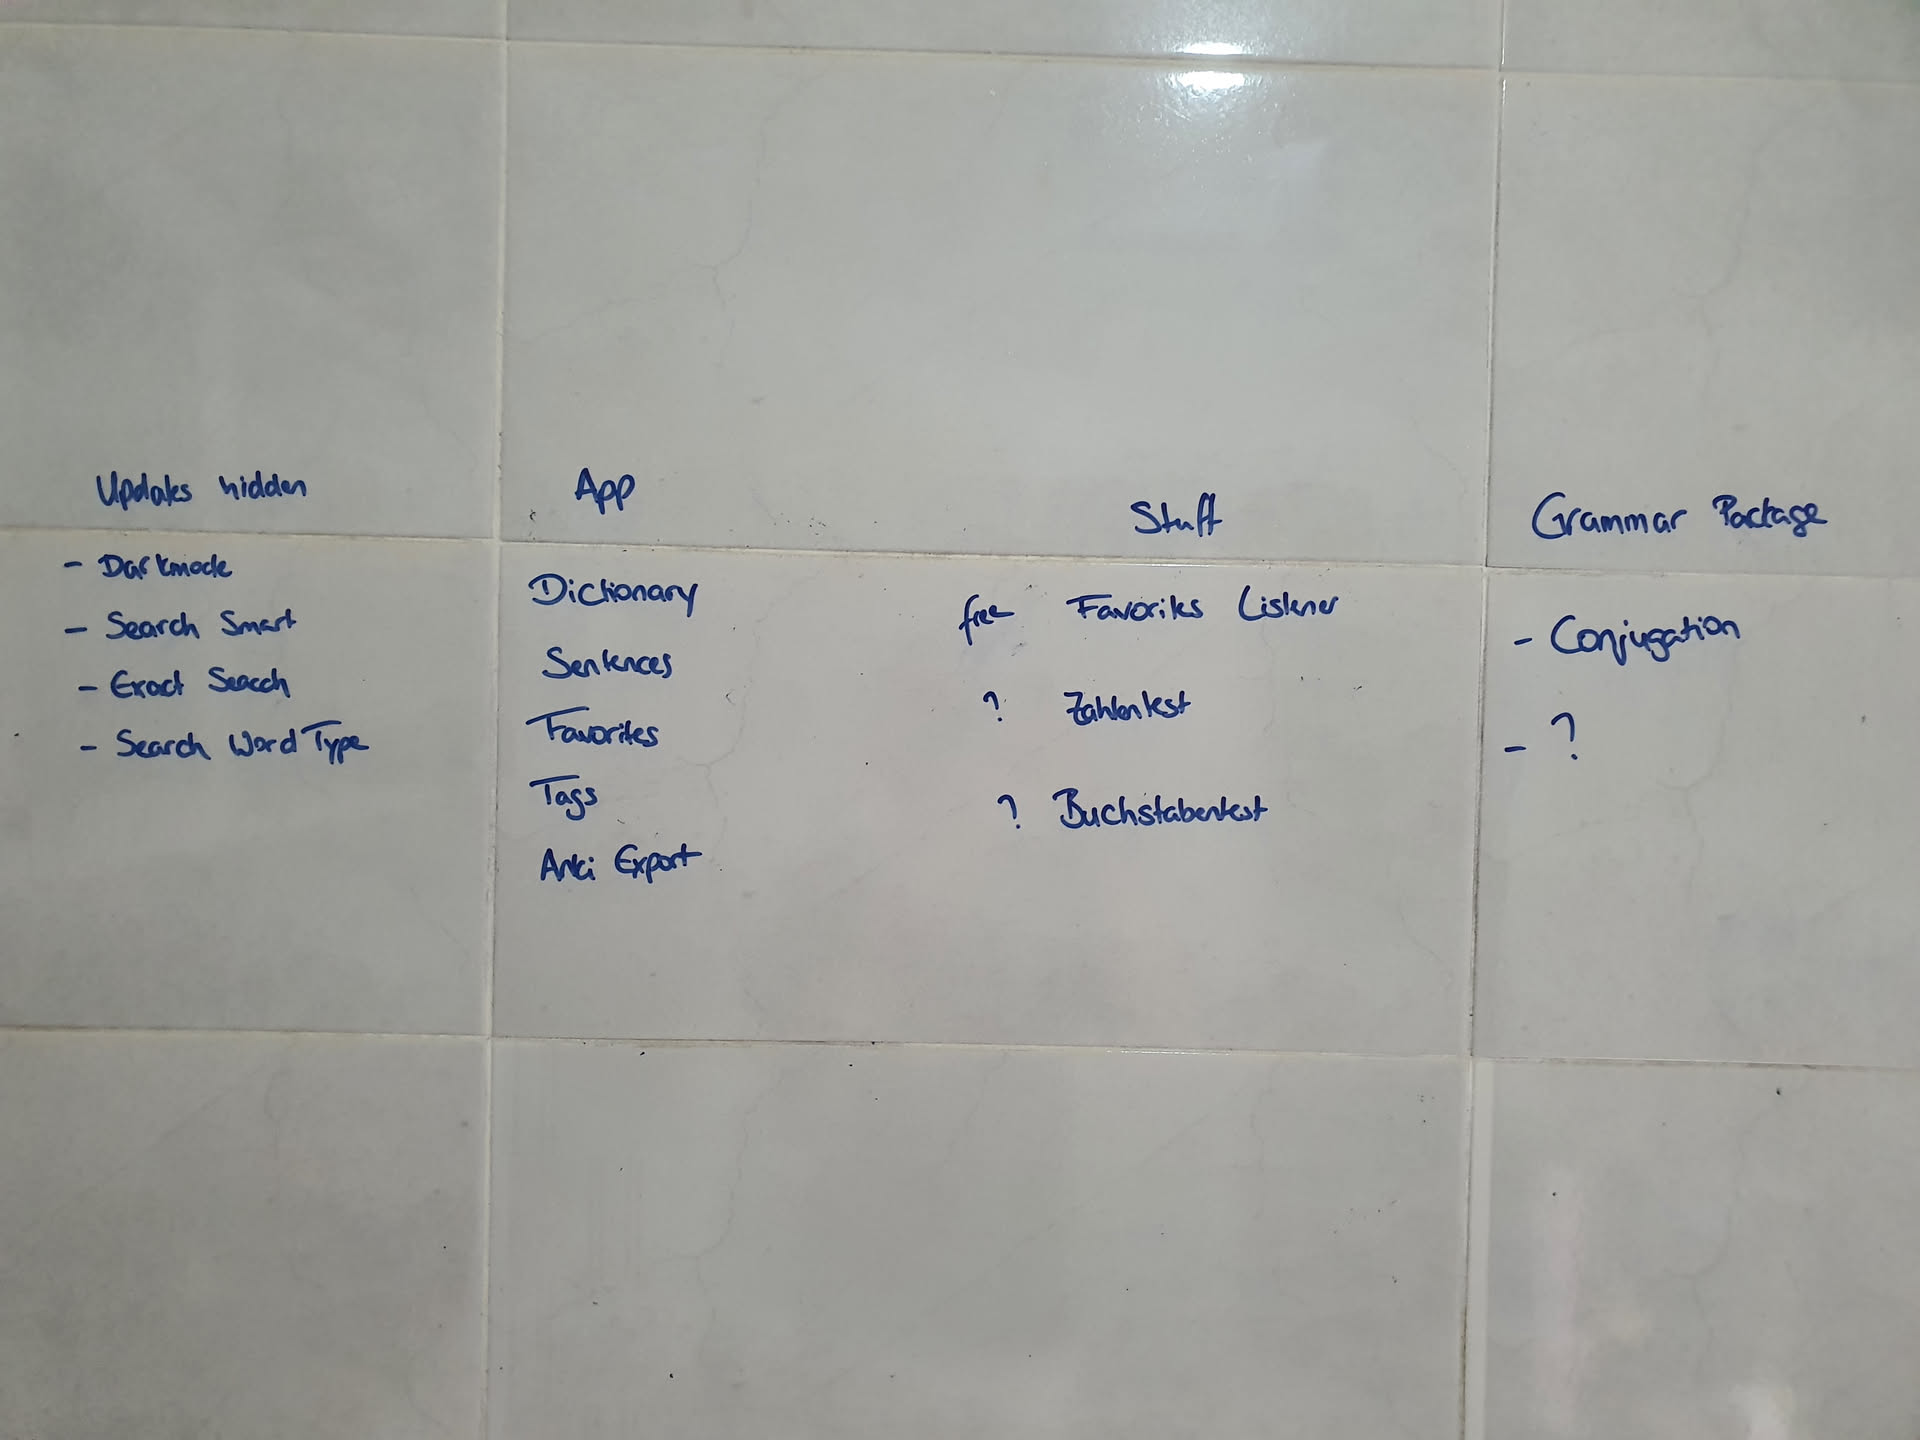 Updates hidden
- Darkmode
- Search Smart
- Exact Search
- Search Word Type
App
Dictionary
Sentences
Favorites
Tags
Anki Export
Stuff
free Favorites Listener
? Zahlentest
? Buchstabentest
Grammar Package
- Conjugation
- ?